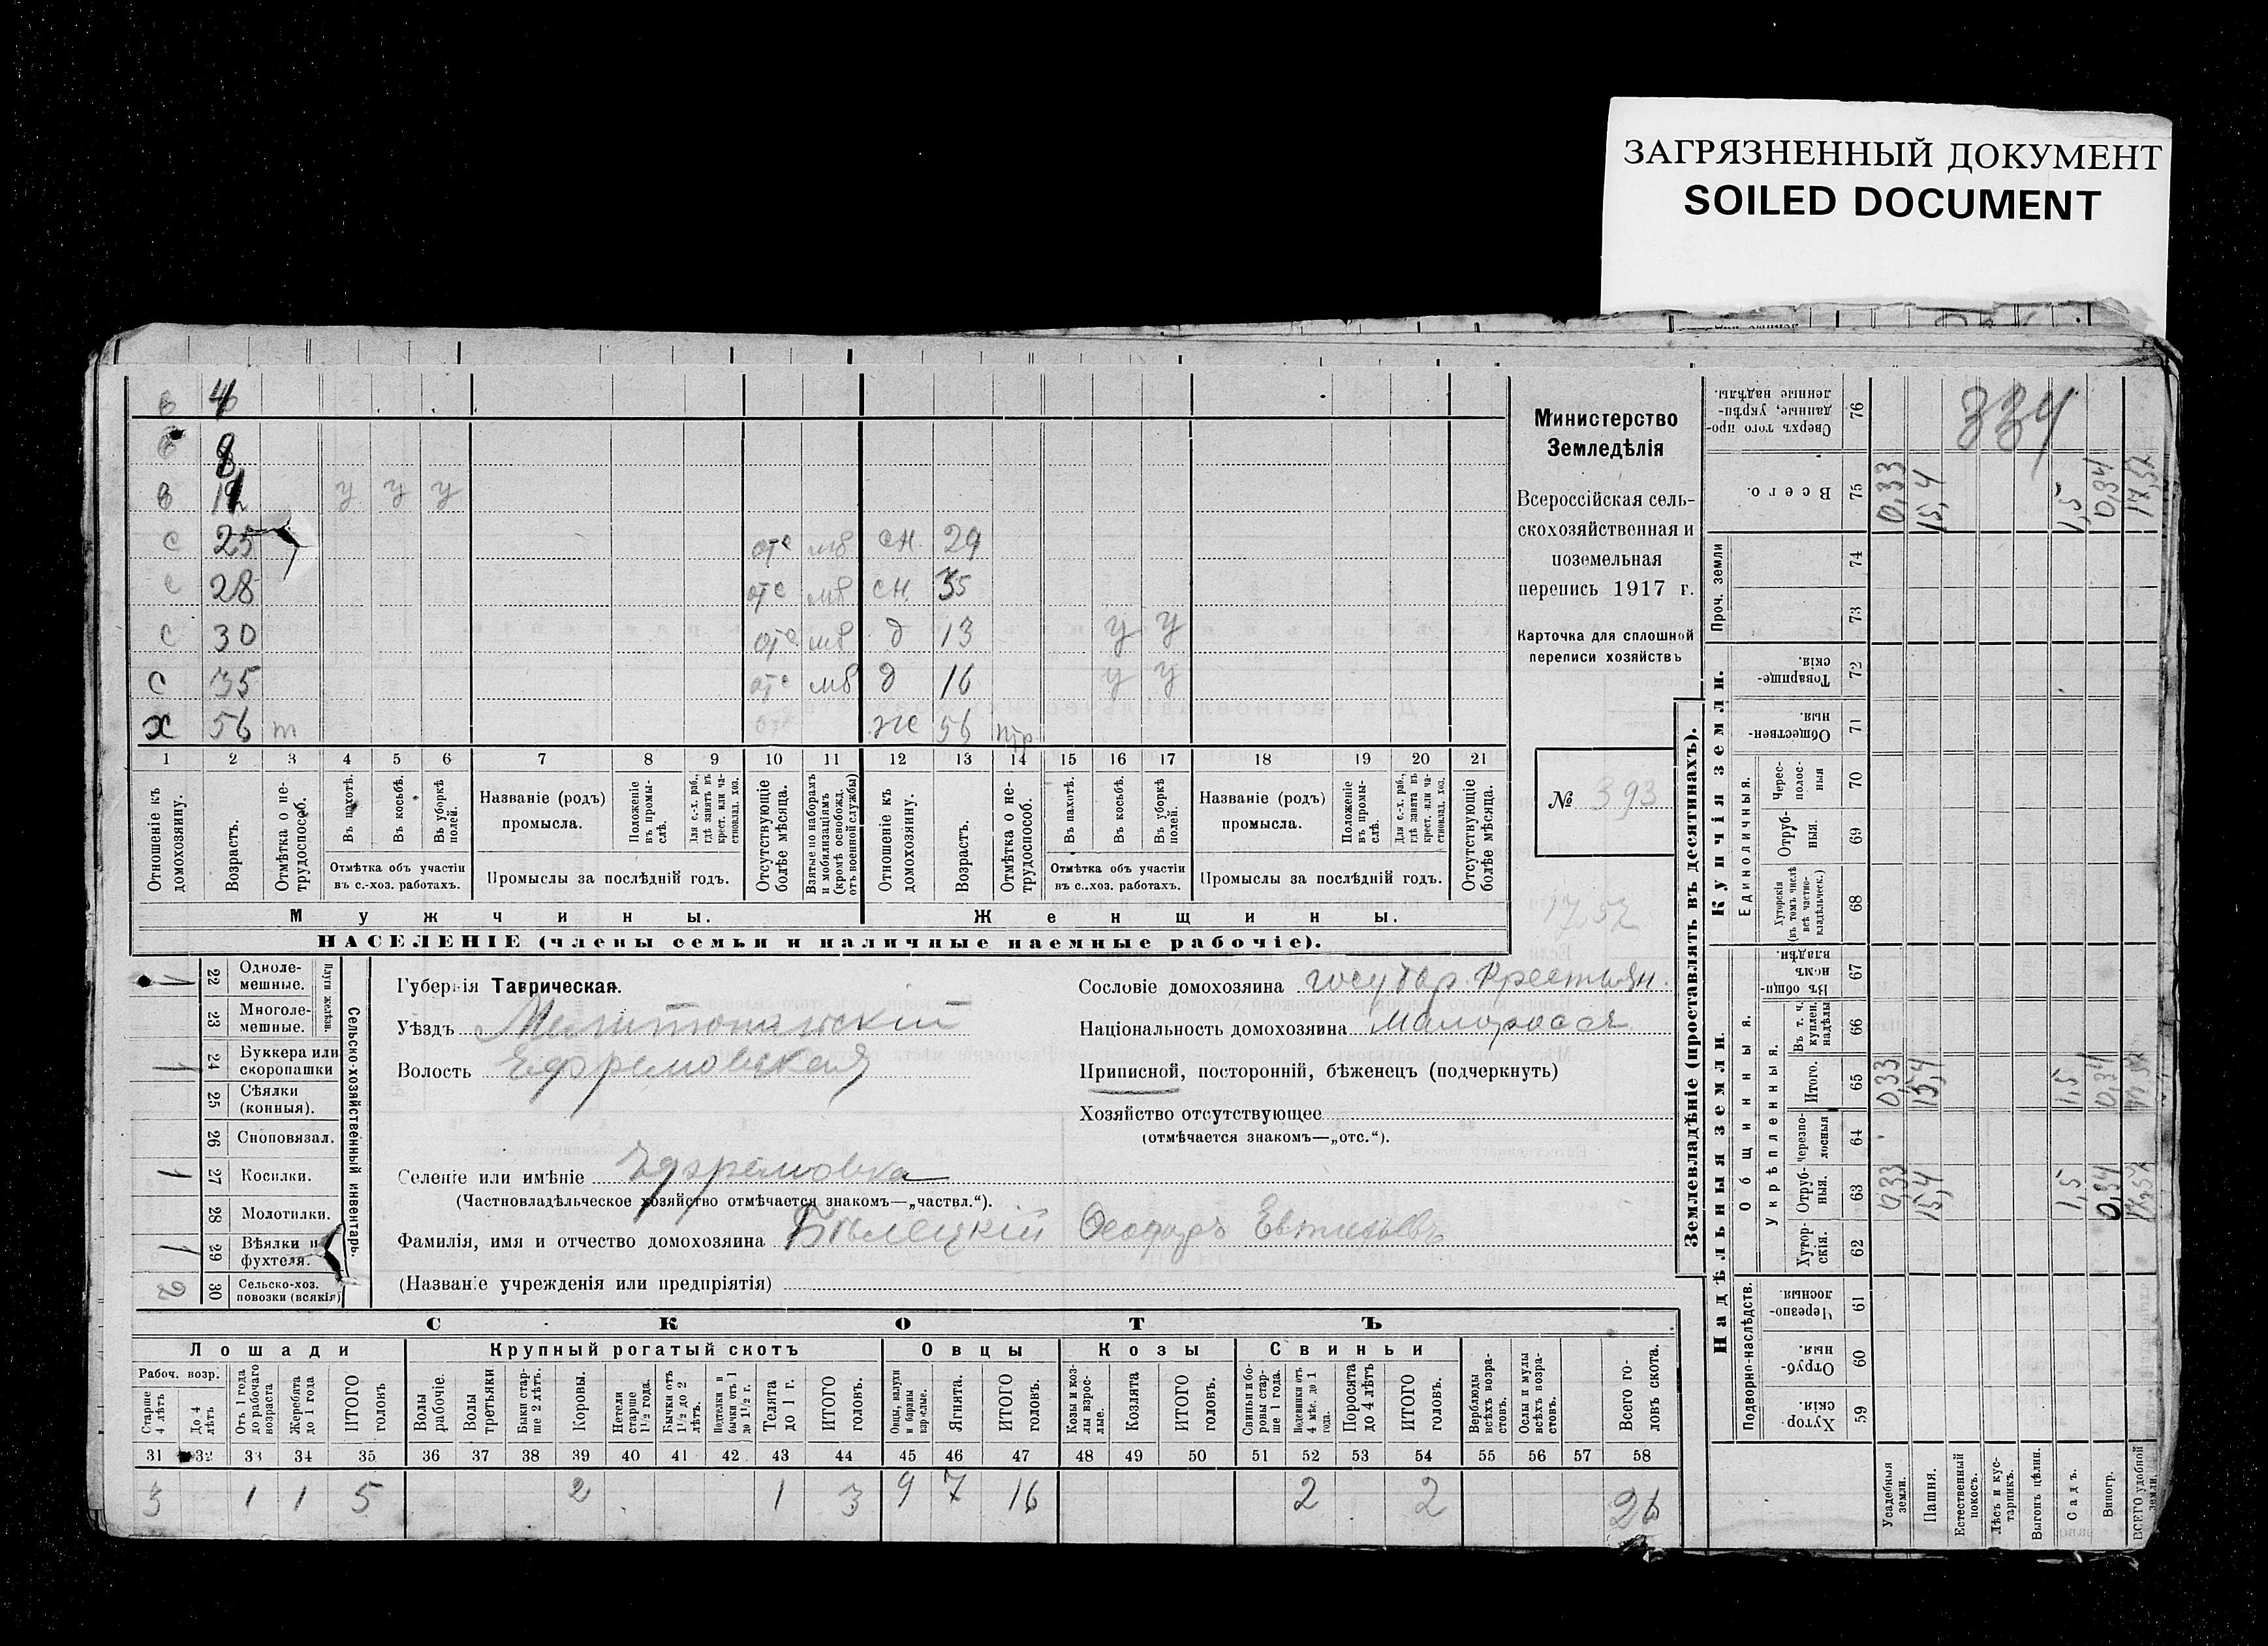 ЗАГРЯЗНЕННЫЙ ДОКУМЕНТ
SOILED DOCUMENT
в 4
8
в у у у
с 25 отс мв сн. 29
с 28 отс мв сн. 35
с 30 отс мв д 13 у у
с 35 отс мв д 16 у у
х 56 т отс ж 56 нтр
1 2 3 4 5 6 7 8 9 10 11 12 13 14 15 16 17 18 19 20 21
Отношеніе къ домохозяину.
Возрастъ.
Отмѣтка о нетрудоспособ.
Въ пахотѣ.
Въ косьбѣ.
Въ уборкѣ полей.
Отмѣтка объ участіи въ с.-хоз. работахъ.
Названіе (родъ) промысла.
Положеніе въ промыслѣ.
Для с.-х. раб., гдѣ занятъ въ крест. или частновлад. хоз.
Промыслы за послѣдній годъ.
Отсутствующіе болѣе мѣсяца.
Взятые по наборамъ и мобилизаціямъ (кромѣ освобожд. отъ военной службы)
Отношеніе къ домохозяину.
Возрастъ.
Отмѣтка о нетрудоспособ.
Въ пахотѣ.
Въ косьбѣ.
Въ уборкѣ полей.
Отмѣтка объ участіи въ с.-хоз. работахъ.
Названіе (родъ) промысла.
Положеніе въ промыслѣ.
Для с.-х. раб., гдѣ занята въ крест. или частновлад. хоз.
Промыслы за послѣдній годъ.
Отсутствующіе болѣе мѣсяца.
Мужчины. Женщины.
НАСЕЛЕНІЕ (члены семьи и наличные наемные рабочіе).
Министерство
Земледѣлія
Всероссійская сель-
скохозяйственная и
поземельная
перепись 1917 г.
Карточка для сплошной
переписи хозяйствъ
№ 393
17,57
Сельско-хозяйственный инвентарь.
Плуги желѣзн.
1 22 Однолемешные.
23 Многолемешные.
1 24 Буккера или скоропашки
25 Сѣялки (конныя).
26 Сноповязал.
1 27 Косилки.
28 Молотилки.
1 29 Вѣялки и фухтеля.
2 30 Сельско-хоз. повозки (всякія)
Губернія Таврическая.
Уѣздъ Мелитопольскій
Волость Ефремовская
Селеніе или имѣніе Ефремовка
(Частновладѣльческое хозяйство отмѣчается знакомъ—„частвл.“).
Фамилія, имя и отчество домохозяина Бѣлецкій Феодоръ
(Названіе учрежденія или предпріятія)
Сословіе домохозяина государ. крестьян.
Національность домохозяина малоросся
Приписной, посторонній, бѣженецъ (подчеркнуть)
Хозяйство отсутствующее
(отмѣчается знакомъ—„отс.“).
СКОТЪ
Лошади Крупный рогатый скотъ Овцы Козы Свиньи
Рабоч. возр.
Старше 4 лѣтъ
До 4 лѣтъ
Отъ 1 года до рабочаго возраста
Жеребята до 1 года
ИТОГО головъ
Волы рабочіе.
Волы третьяки
Быки старше 2 лѣтъ.
Коровы.
Нетели старше 1½ года.
Бычки отъ 1½ до 2 лѣтъ.
Подтелки и бычки отъ 1 до 1½ г.
Телята до 1 г.
ИТОГО головъ.
Овцы, валухи и бараны взрослые.
Ягнята.
ИТОГО головъ.
Козы и козлы взрослые.
Козлята
ИТОГО головъ.
Свиньи и боровы старше 1 года.
Подсвинки отъ 4 мѣс. до 1 года.
Поросята до 4 лѣтъ
ИТОГО головъ.
Верблюды всѣхъ возрастовъ.
Ослы и мулы всѣхъ возрастовъ.
Всего головъ скота.
31 32 33 34 35 36 37 38 39 40 41 42 43 44 45 46 47 48 49 50 51 52 53 54 55 56 57 58
3 1 1 5 2 1 3 9 7 16 2 2 26
Землевладѣніе (проставлять въ десятинахъ).
Купчія земли.
Надѣльныя земли.
Проч. земли
Единоличныя.
Общинныя.
Укрѣпленныя.
Подворно-наслѣдств.
Сверхъ того проданные, укрѣпленные надѣлы. 76
334
Всего. 75 0,33 15,4 1,5 0,34 17,57
74
73
Товарищескія. 72
Общественныя. 71
Чересполосныя 70
Отрубныя. 69
Хуторскія (въ томъ числѣ всѣ частновладѣльческ.) 68
Въ общинномъ владѣн. 67
Въ т. ч. куплен. надѣлы 66
Итого. 65 0,33 15,4 1,5 0,34 17,57
Черезполосныя 64
Отрубныя. 63 0,33 15,4 1,5 0,34 17,57
Хуторскія. 62
Черезполосныя 61
Отрубныя. 60
Хуторскія. 59
Усадебныя земли.
Пашня.
Естественный покосъ.
Лѣсъ и кустарникъ.
Выгонъ цѣлин.
Садъ.
Виногр.
ВСЕГО удобной земли.